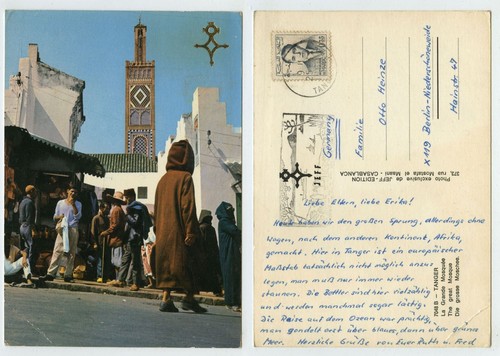 TAN
JEFF
Germany
Familie
Otto Heinze
X 119 Berlin-Niederschöneweide
Hainstr. 47
Photo exclusive de JEFF-EDITION
373, rue Mostafa el Maani - CASABLANCA
TANGER
La Grande Mosquée
The great Mosque
Die grosse Moschee
Liebe Eltern, liebe Erika!
Heute haben wir den großen Sprung, allerdings ohne
Wagen, nach dem anderen Kontinent, Afrika,
gemacht. Hier in Tanger ist ein europäischer
Maßstab tatsächlich nicht möglich anzu
legen, man muß nur immer wieder
staunen. Die Bettler sind hier vielzählig
und werden manchmal sogar lästig.
Die Reise auf dem Ocean war prächtig,
man gondelt erst über blaues, dann über grünes
Meer. Herzliche Grüße von Euer Ruth u. Fred